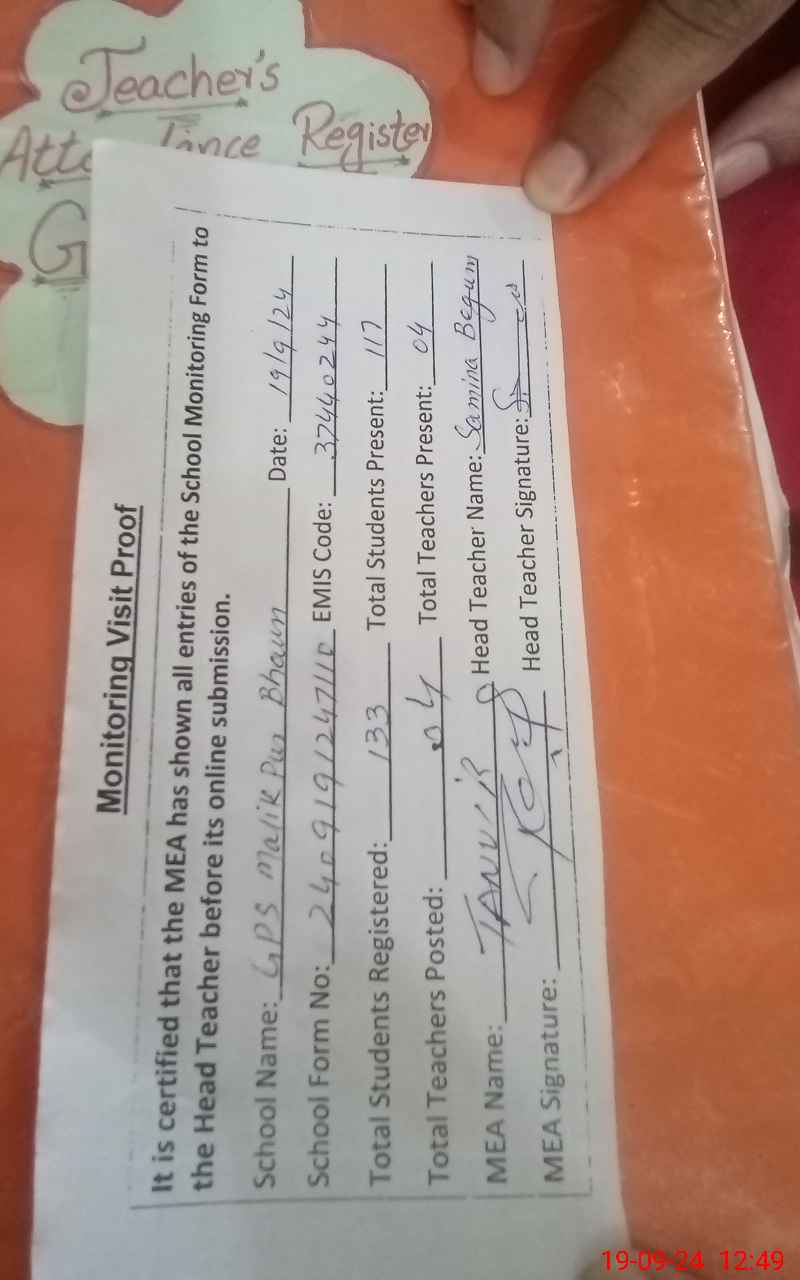 Teacher's
Register
G
Monitoring Visit Proof
It is certified that the MEA has shown all entries of the School Monitoring Form to
the Head Teacher before its online submission.
School Name: GPS Malik Pur Bhaun Date: 19/9/24
School Form No: 2409191247110 EMIS Code: 37440244
Total Students Registered: 133 Total Students Present: 117
Total Teachers Posted: 04 Total Teachers Present: 04
MEA Name: TANVIR Head Teacher Name: Samina Begum
MEA Signature: Head Teacher Signature:
19-09-24 12:49